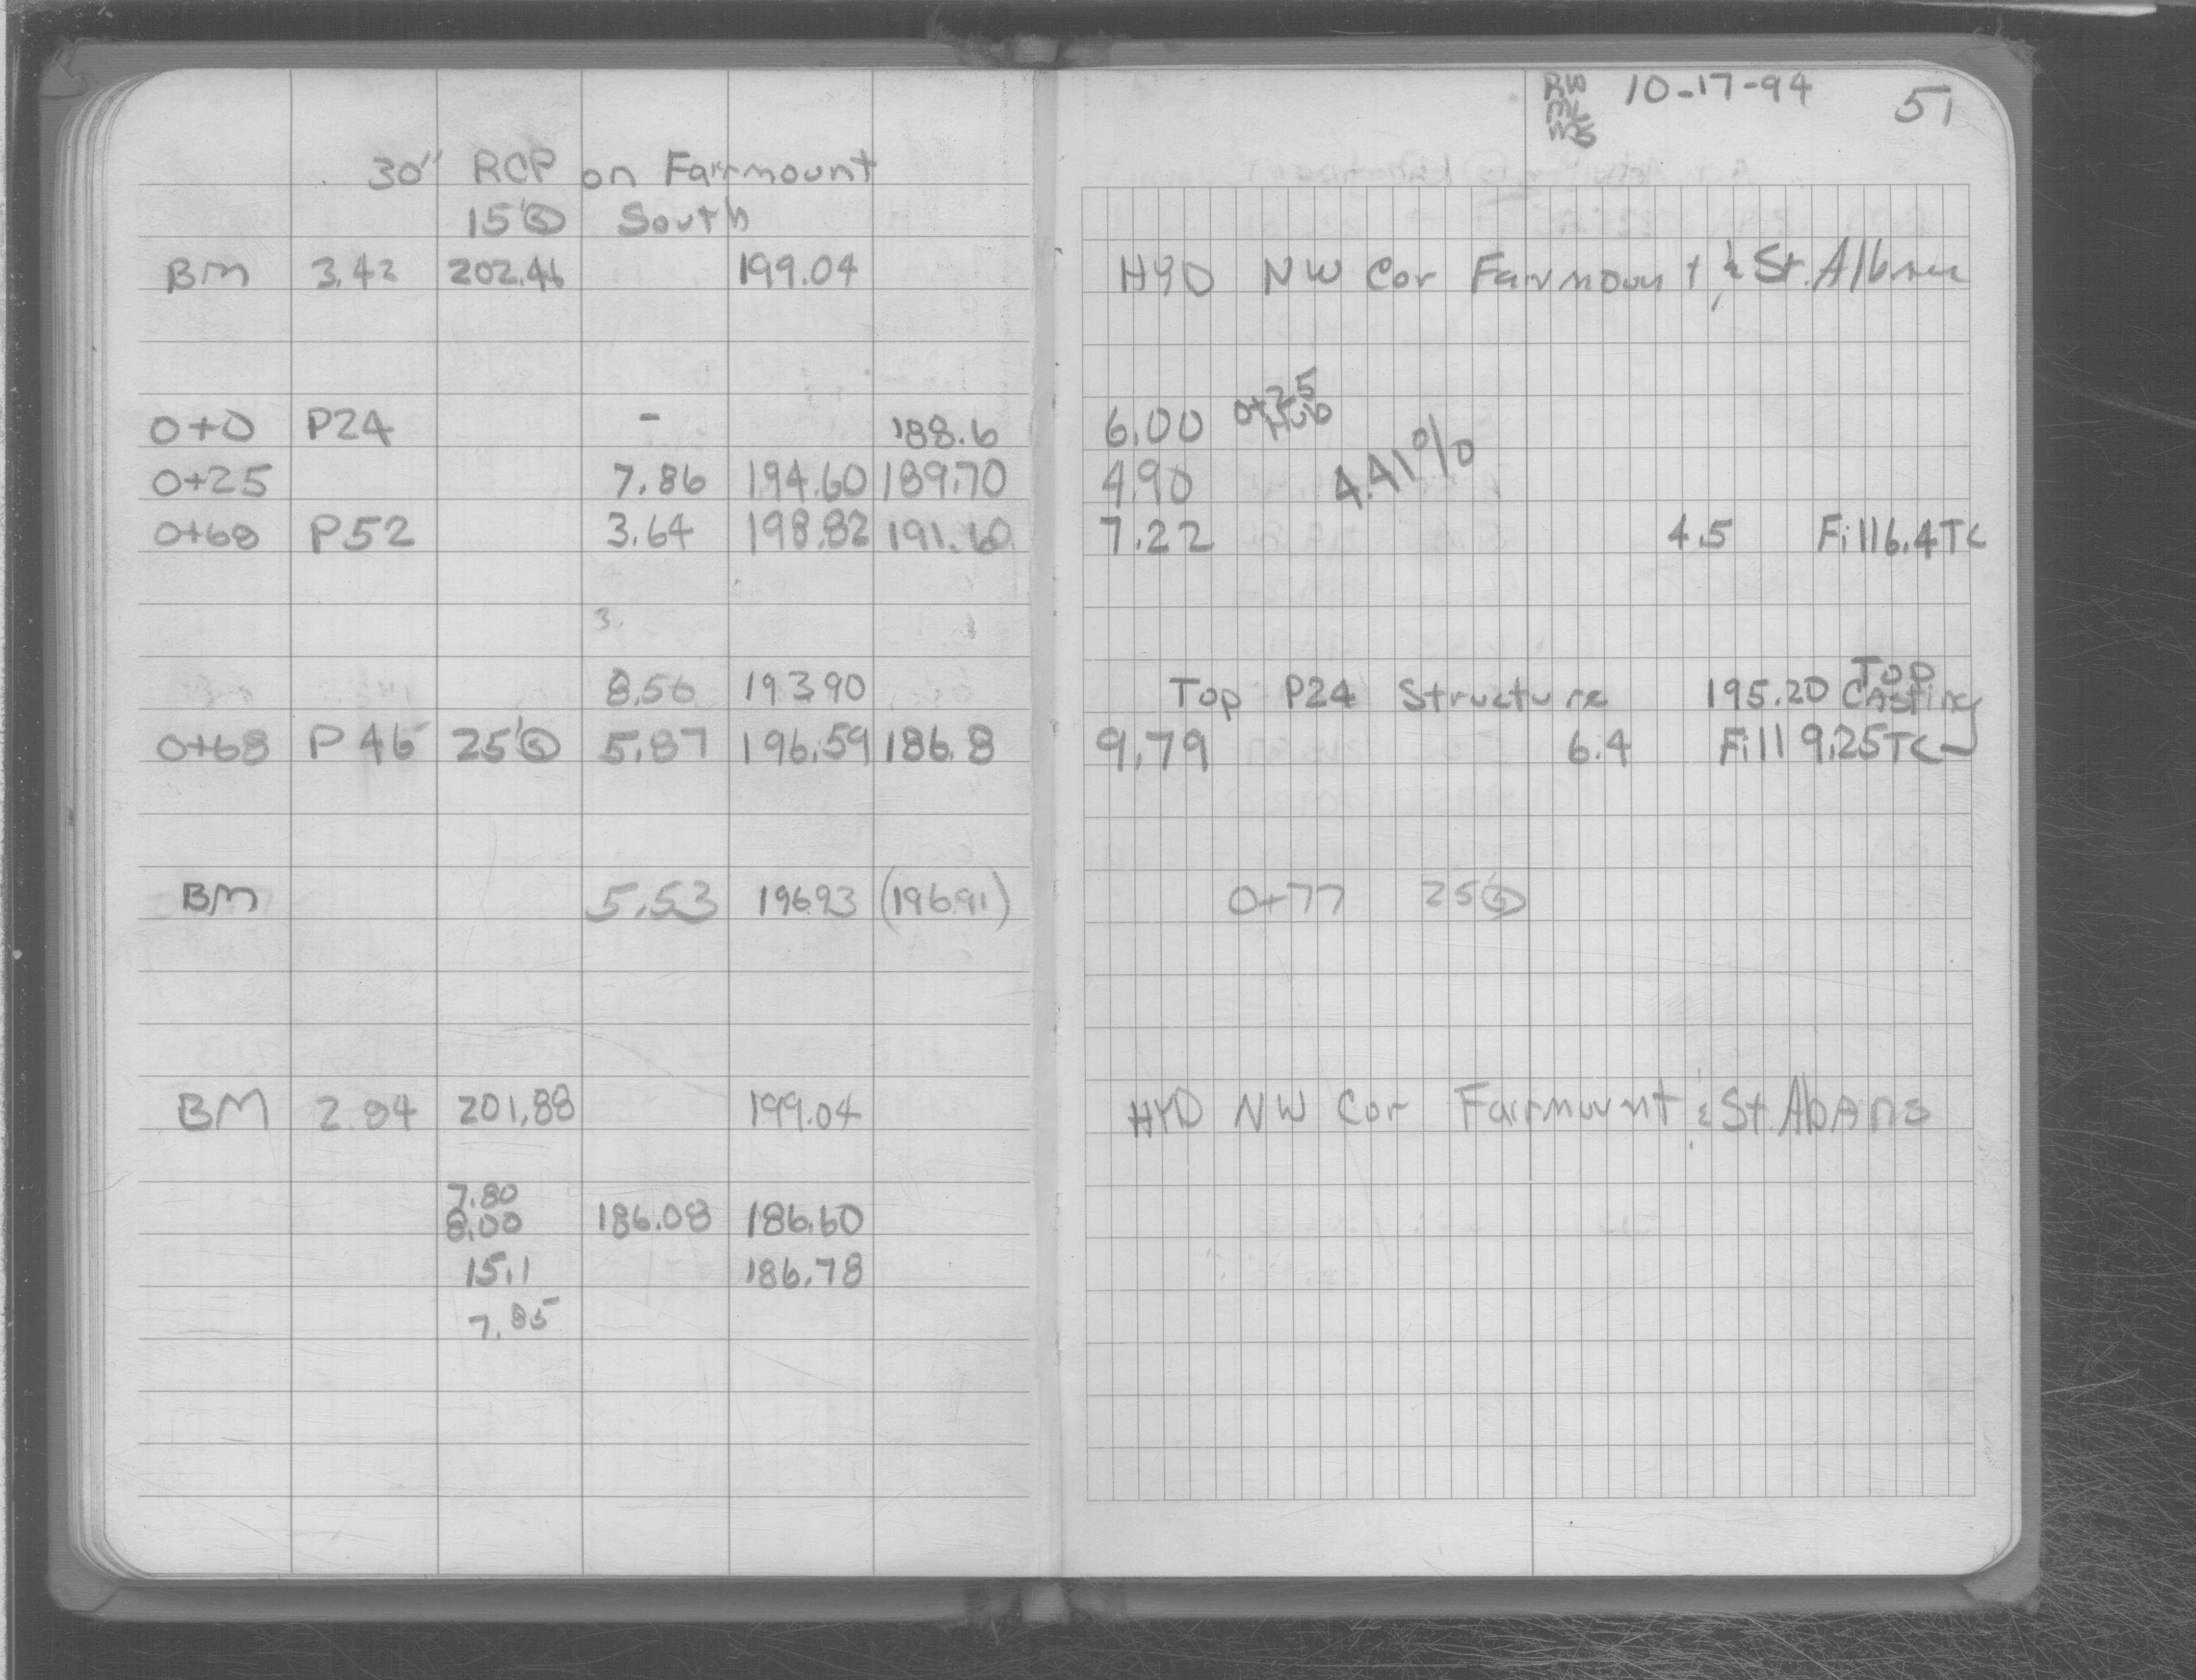 30" RCP on Fairmount
15' Ⓢ South
BM 3.42 202.46 199.04
0+0 P24 - 188.6
0+25 7.86 194.60 189.70
0+68 P52 3.64 198.82 191.60
3.
8.56 193.90
0+68 P46 25' Ⓢ 5.87 196.59 186.8
BM 5.53 196.93 (196.91)
BM 2.84 201.88 199.04
7.80
8.00 186.08 186.60
15.1 186.78
7.85
RW 10-17-94 51
ML
HYD NW Cor Fairmount & St. Albans
6.00 0+25 Hub
4.90 4.41%
7.22 4.5 Fill 6.4 TC
Top P24 Structure 195.20 Top Casting
9.79 6.4 Fill 9.25 TC
0+77 25' Ⓢ
HYD NW Cor Fairmount & St. Abans